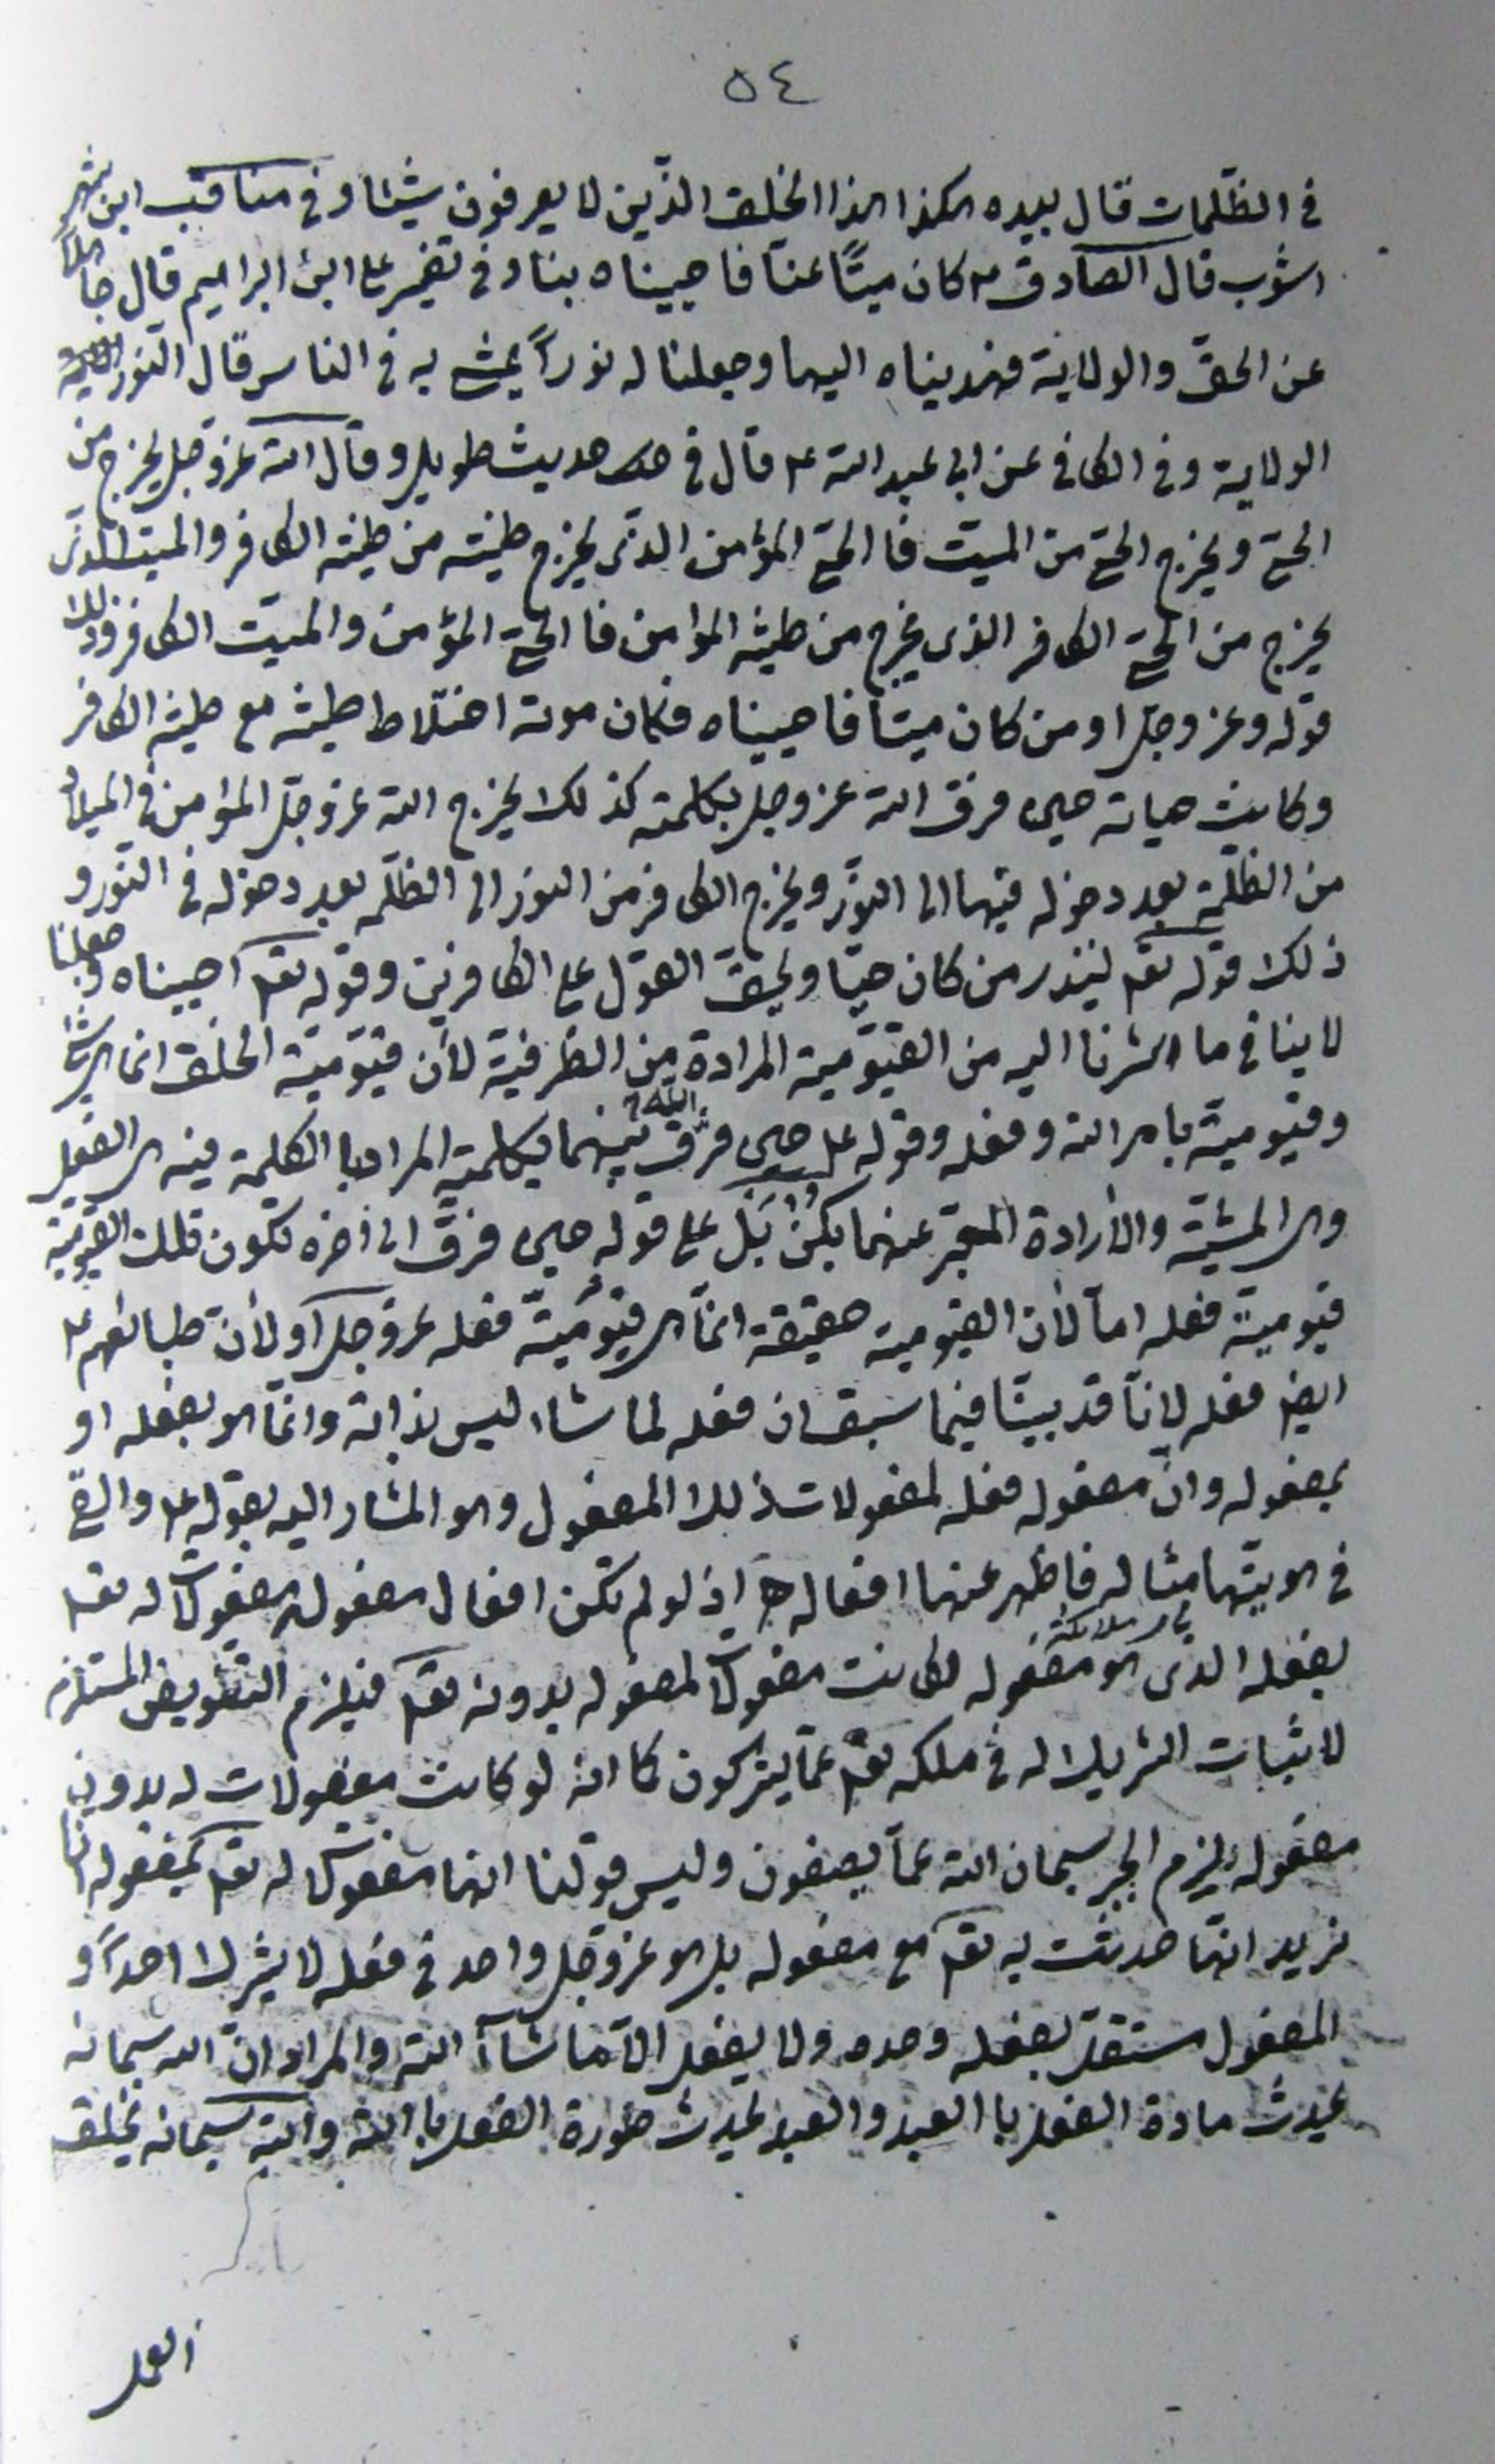 ٥٤
في الظلمات قال بيده هكذا هذا الخلق الذين لا يعرفون شيئا وفي مناقب ابن شهر
اشوب قال الصادق ع كان ميتًا عنّا فاحييناه بنا وفي تفسير علي ابن ابراهيم قال جاهلًا
عن الحق والولاية فهديناه اليهما وجعلنا له نورًا يمشي به في الناس قال النور
الولاية وفي الكافي عن ابي عبد الله ع قال في حديث طويل وقال الله عزوجل يخرج من
الحي ويخرج الحي من الميت فا الحي المؤمن الذي يخرج طينته من طينة الكافر والميت الذي
يخرج من الحي الكافر الذي يخرج من طينة المؤامن فا الحي المؤمن والميت الكافر وذلك
قوله وعز وجل او من كان ميتا فاحييناه فكان موته اختلاط طينته مع طينة الكافر
وكانت حياته حين فرق الله عز وجل بكلمته كذلك يخرج الله عز وجل المؤامن في الميلاد
من الظلمة بعد دخوله فيها الى النور ويخرج الكافر من النور الى الظلمه بعد دخوله في النور و
ذلك قوله تعه لينذر من كان حيّا ويحق القول على الكافرين وقوله تعه احييناه وجعلنا
لا ينافي ما اشرنا اليه من القيّوميّة المرادة من الظرفية لأن قيّوميّة الخلق انما هي
وقيّومية بامر الله وفعله وقوله ع حين فرّق الله بينهما بكلمته المراد با الكلمة فيه هي الفعل
وهي المشيّة والأرادة المعبّر عنهما بكن بل على قوله حين فرق الى اخره تكون تلك القيّوميّة
قيومية فعله اما لأن القيومية حقيقة انّما هي قيّوميّة فعله عز وجل او لأن طبائعهم ع
ايضا فعله لانّا قد بينّا فيما سبق ان فعله لما شاء ليس بذاته وانّما هو بفعله او
بمفعوله وانّ مفعوله فعله لمفعولات ذلك المفعول وهو المشار اليه بقوله ع والقى
في هويتها مثاله فاظهر عنها افعاله اذ لو لم تكن افعال مفعوله مفعولات له تعه
بفعله الذي هو مفعوله لكانت مفعولات لمفعوله بدونه تعه فيلزم التفويض المستلزم
لاثبات الشريك له في ملكه تعه عمّا يشركون كما انه لو كانت مفعولات له بدون
مفعوله يلزم الجبر سبحان الله عمّا يصفون وليس قولنا انها مفعولات له تعه بمفعوله انّا
نريد انها حدثت به تعه مع مفعوله بل هو عز وجل واحد في فعله لا يشرك احدًا و
المفعول مستقل بفعله وحده ولا يفعل الا ما شاء الله والمراد انّ الله سبحانه
يحدث مادة الفعل با العبد والعبد يحدث صورة الفعل با الله والله سبحانه يخلق
العمل